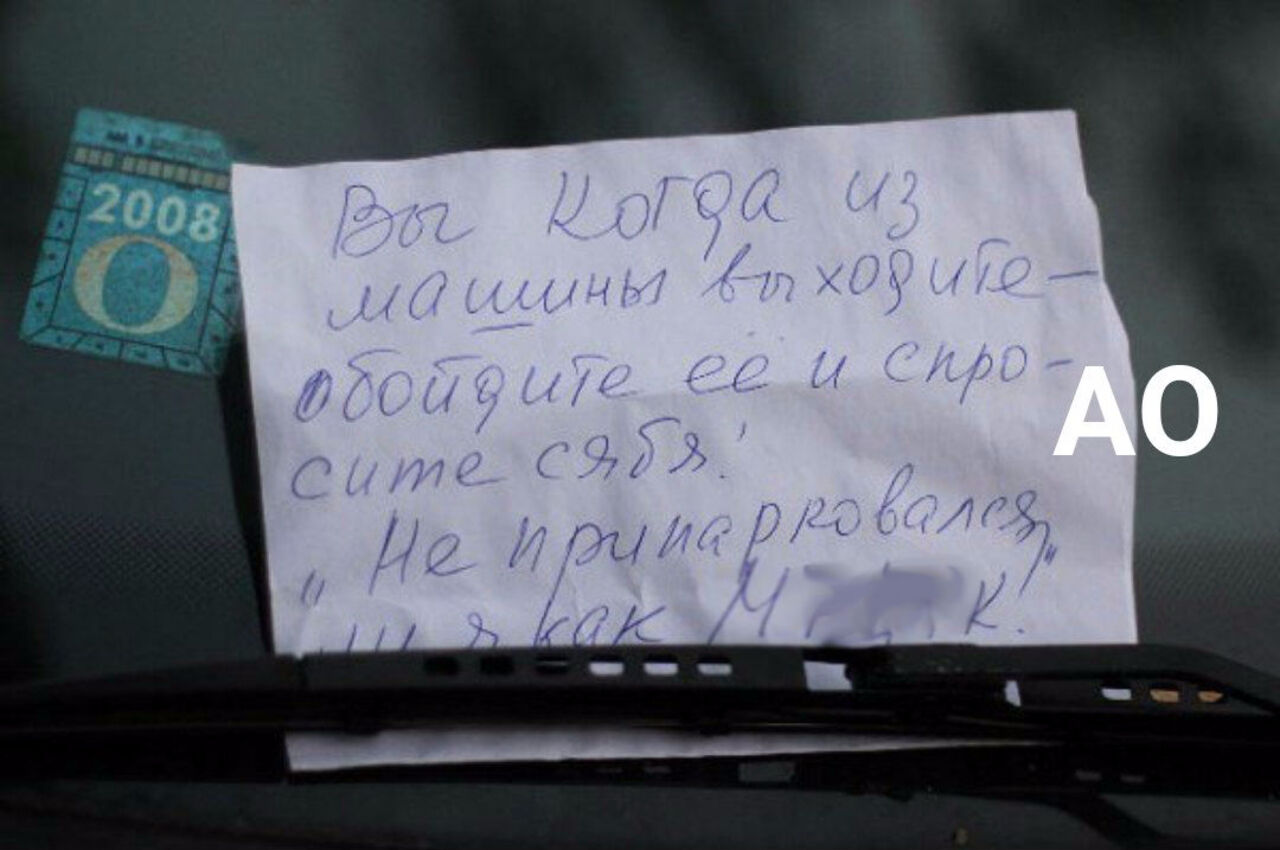 2008
О
Вы когда из
машины выходите —
обойдите её и спро-
сите сябя!
„Не припарковался
ли я как М к!"
АО